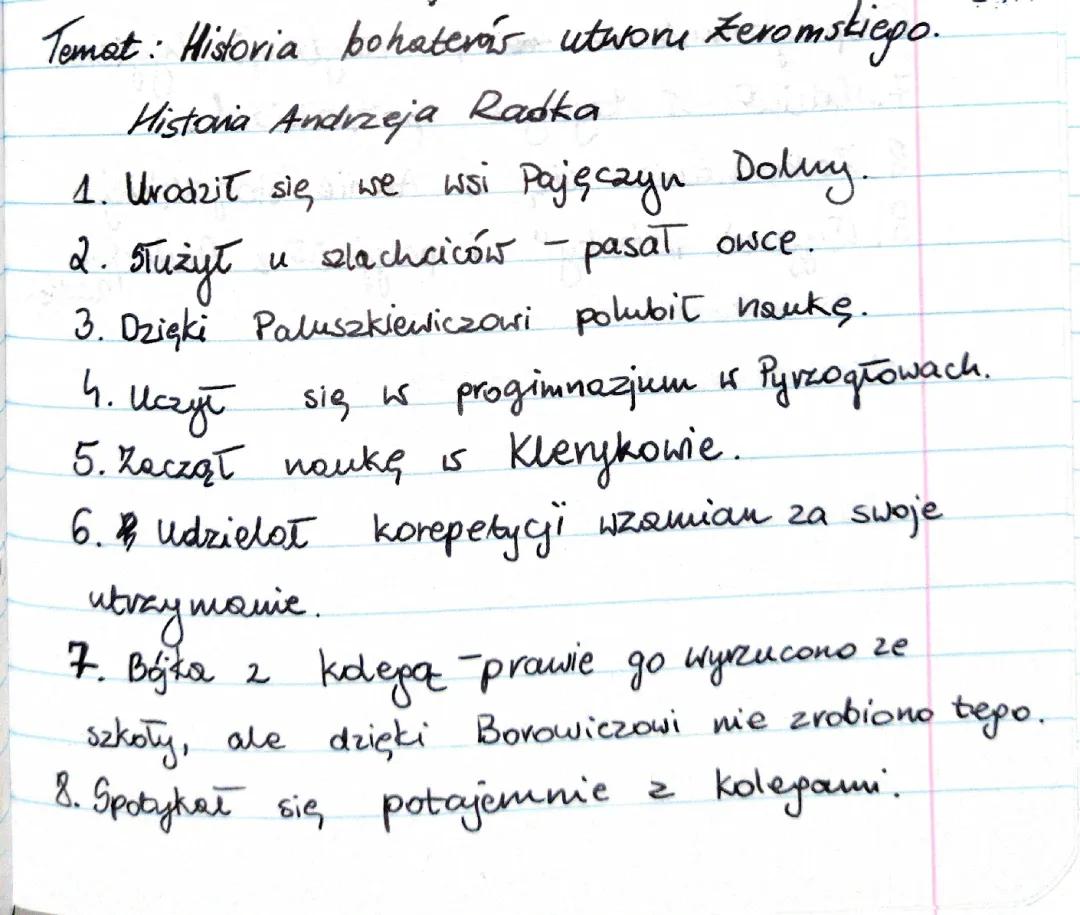 Temat: Historia bohaterów utworu Żeromskiego.
Historia Andrzeja Radka
1. Urodził się we wsi Pajęczyn Dolny.
2. Służył u szlachciców – pasał owce.
3. Dzięki Paluszkiewiczowi polubił naukę.
4. Uczył się w progimnazjum w Pyrzogłowach.
5. Zaczął naukę w Klerykowie.
6. Udzielał korepetycji wzamian za swoje
utrzymanie.
7. Bójka z kolegą – prawie go wyrzucono ze
szkoły, ale dzięki Borowiczowi nie zrobiono tego.
8. Spotykał się potajemnie z kolegami.